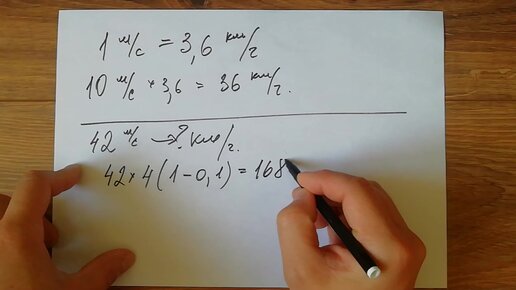 1 м/с = 3,6 км/г
10 м/с * 3,6 = 36 км/г.
42 м/с → ? км/г.
42 * 4 (1 - 0,1) = 168